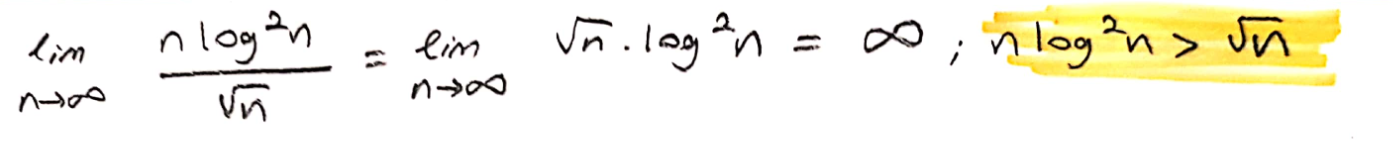 lim n→∞ n log²n / √n = lim n→∞ √n . log²n = ∞ ; n log²n > √n